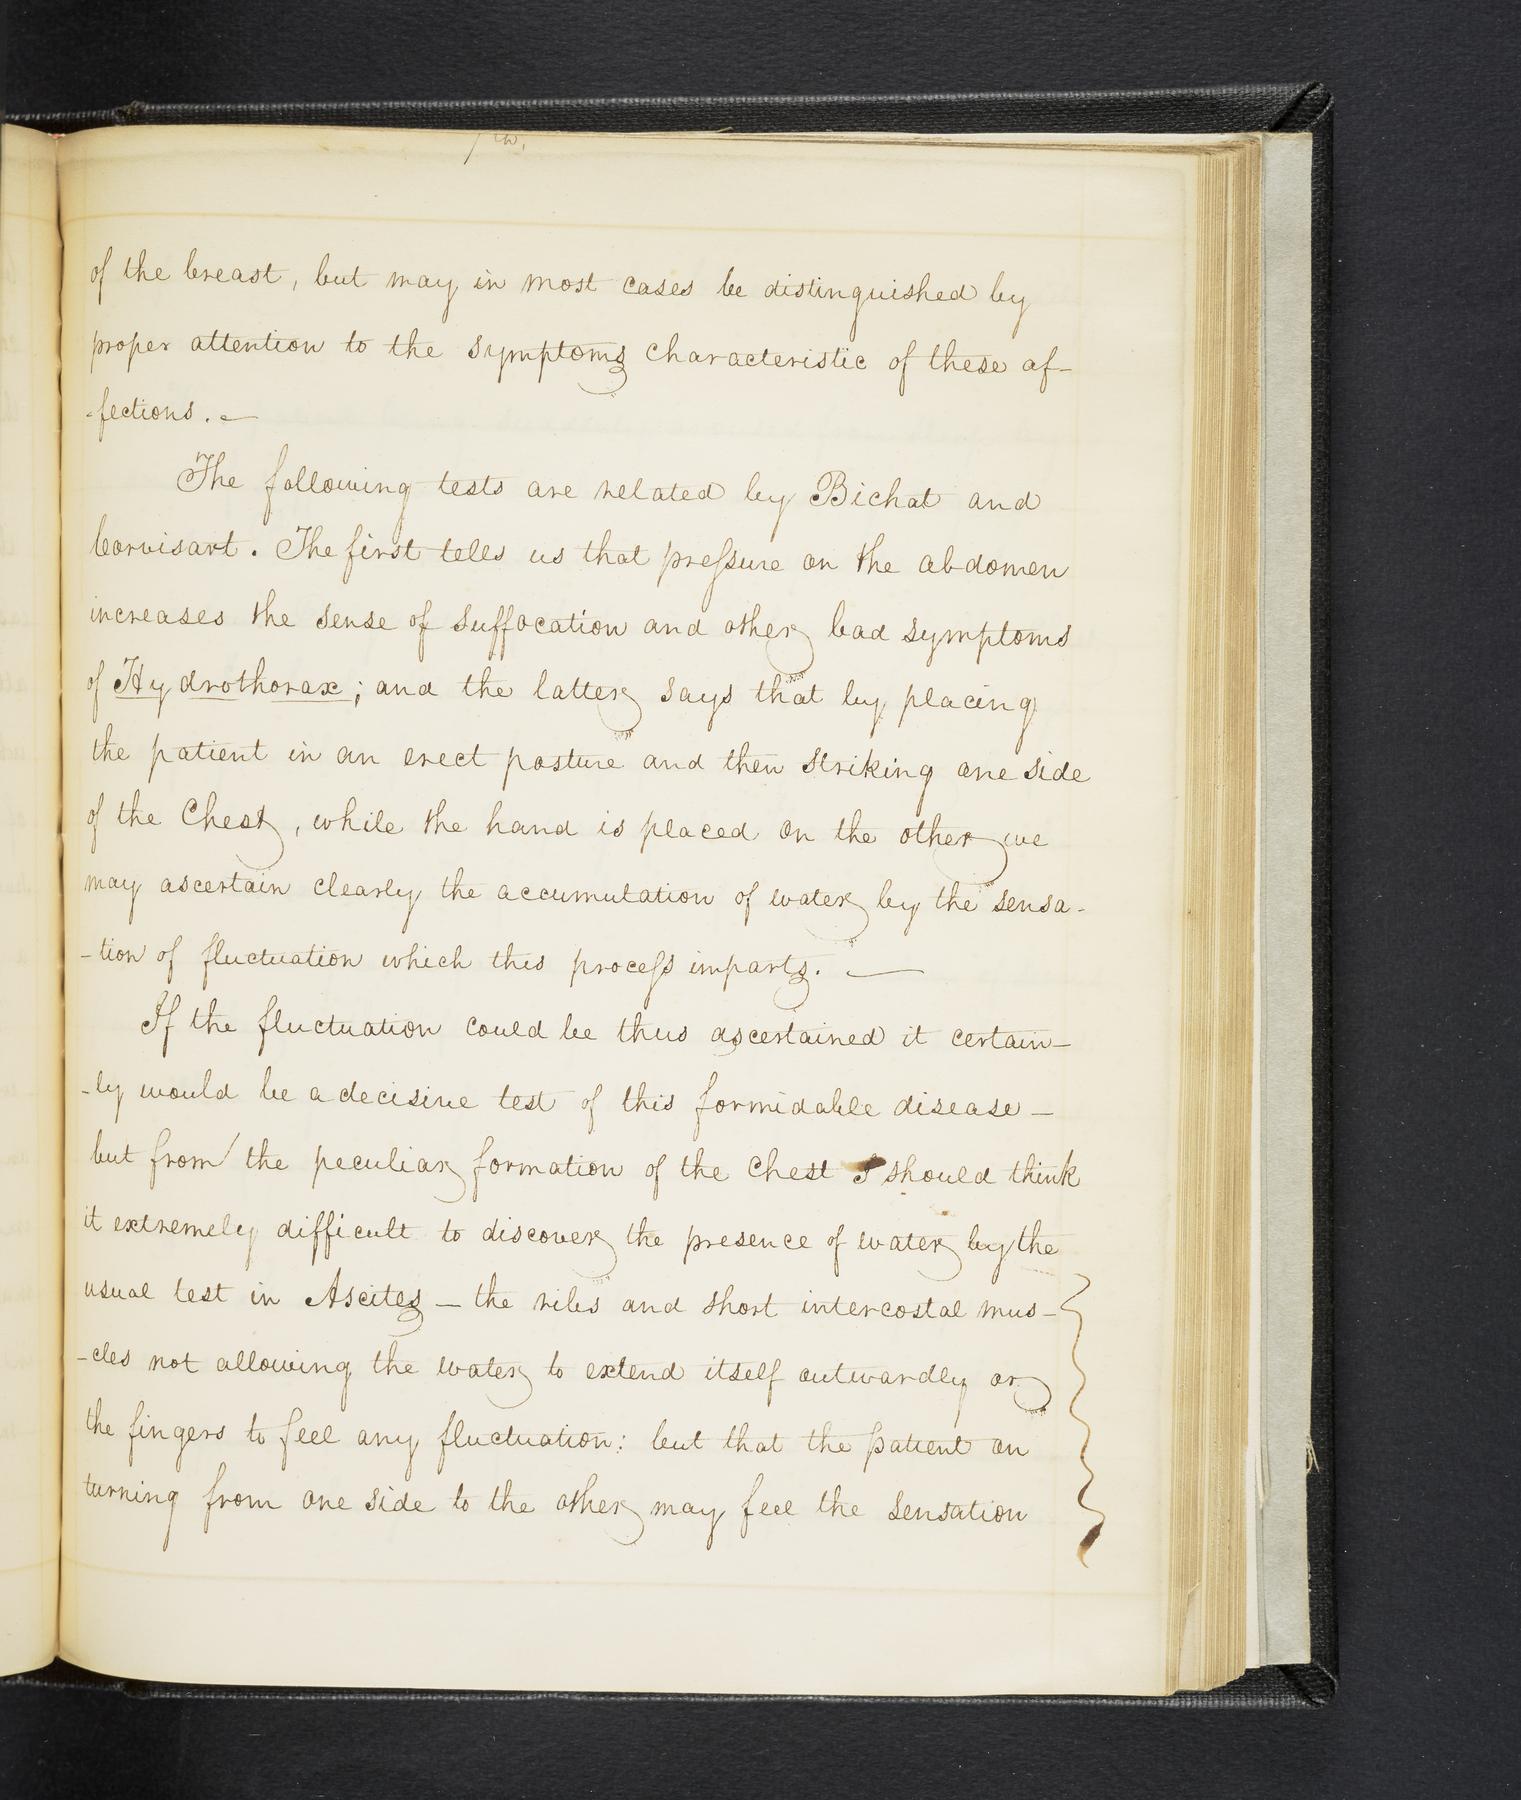 of the breast, but may in most cases be distinguished by
proper attention to the symptoms characteristic of these af-
-fections. —
The following tests are related by Bichat and
Corvisart. The first tells us that preſsure on the abdomen
increases the sense of suffocation and other bad symptoms
of Hydrothorax; and the latter says that by placing
the patient in an erect posture and then striking one side
of the Chest, while the hand is placed on the other we
may ascertain clearly the accumulation of water by the sensa-
-tion of fluctuation which this proceſs imparts. —
If the fluctuation could be thus ascertained it certain-
-ly would be a decisive test of this formidable disease —
but from the peculiar formation of the Chest I should think
it extremely difficult to discover the presence of water by the
usual test in Ascites — the ribs and short intercostal mus-
-cles not allowing the water to extend itself outwardly or
the fingers to feel any fluctuation: but that the patient on
turning from one side to the other may feel the sensation